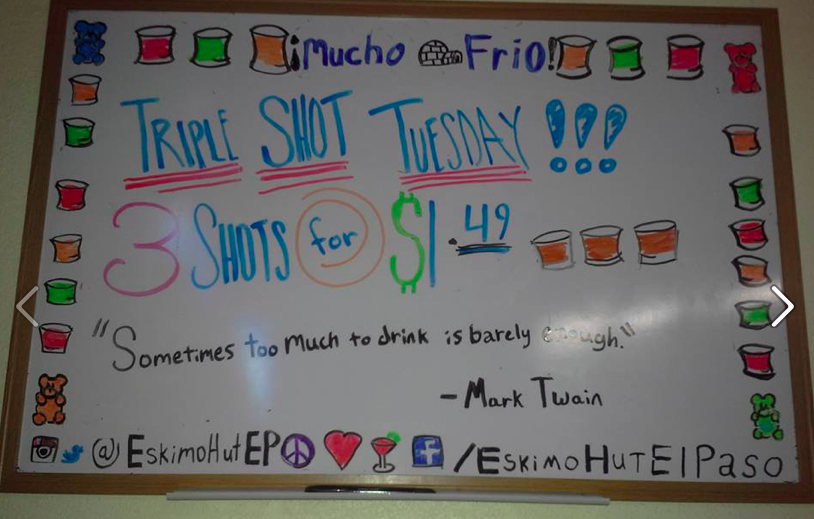 ¡Mucho Frio!
TRIPLE SHOT TUESDAY !!!
3 SHOTS for $1.49
"Sometimes too much to drink is barely enough."
-Mark Twain
@EskimoHutEP /ESKIMOHUTElPaso